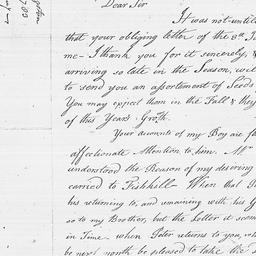 Dear Sir
It was not until
that your obliging letter of the 8th. I
me - I thank you for it sincerely, &
arriving so late in the Season, wit
to send you an assortment of Seeds
You may expect them in the Fall & they
of this Years Groth.
Your account of my Boy are f
affectionate Attention to him. Mr
understood the Reason of my desiring
carried to Fishkill - When that
his returning to, and remaining with his G
so to my Brother, but the Letter it seems
in Time - when Peter returns to you, wh
be next month, be pleased to take the